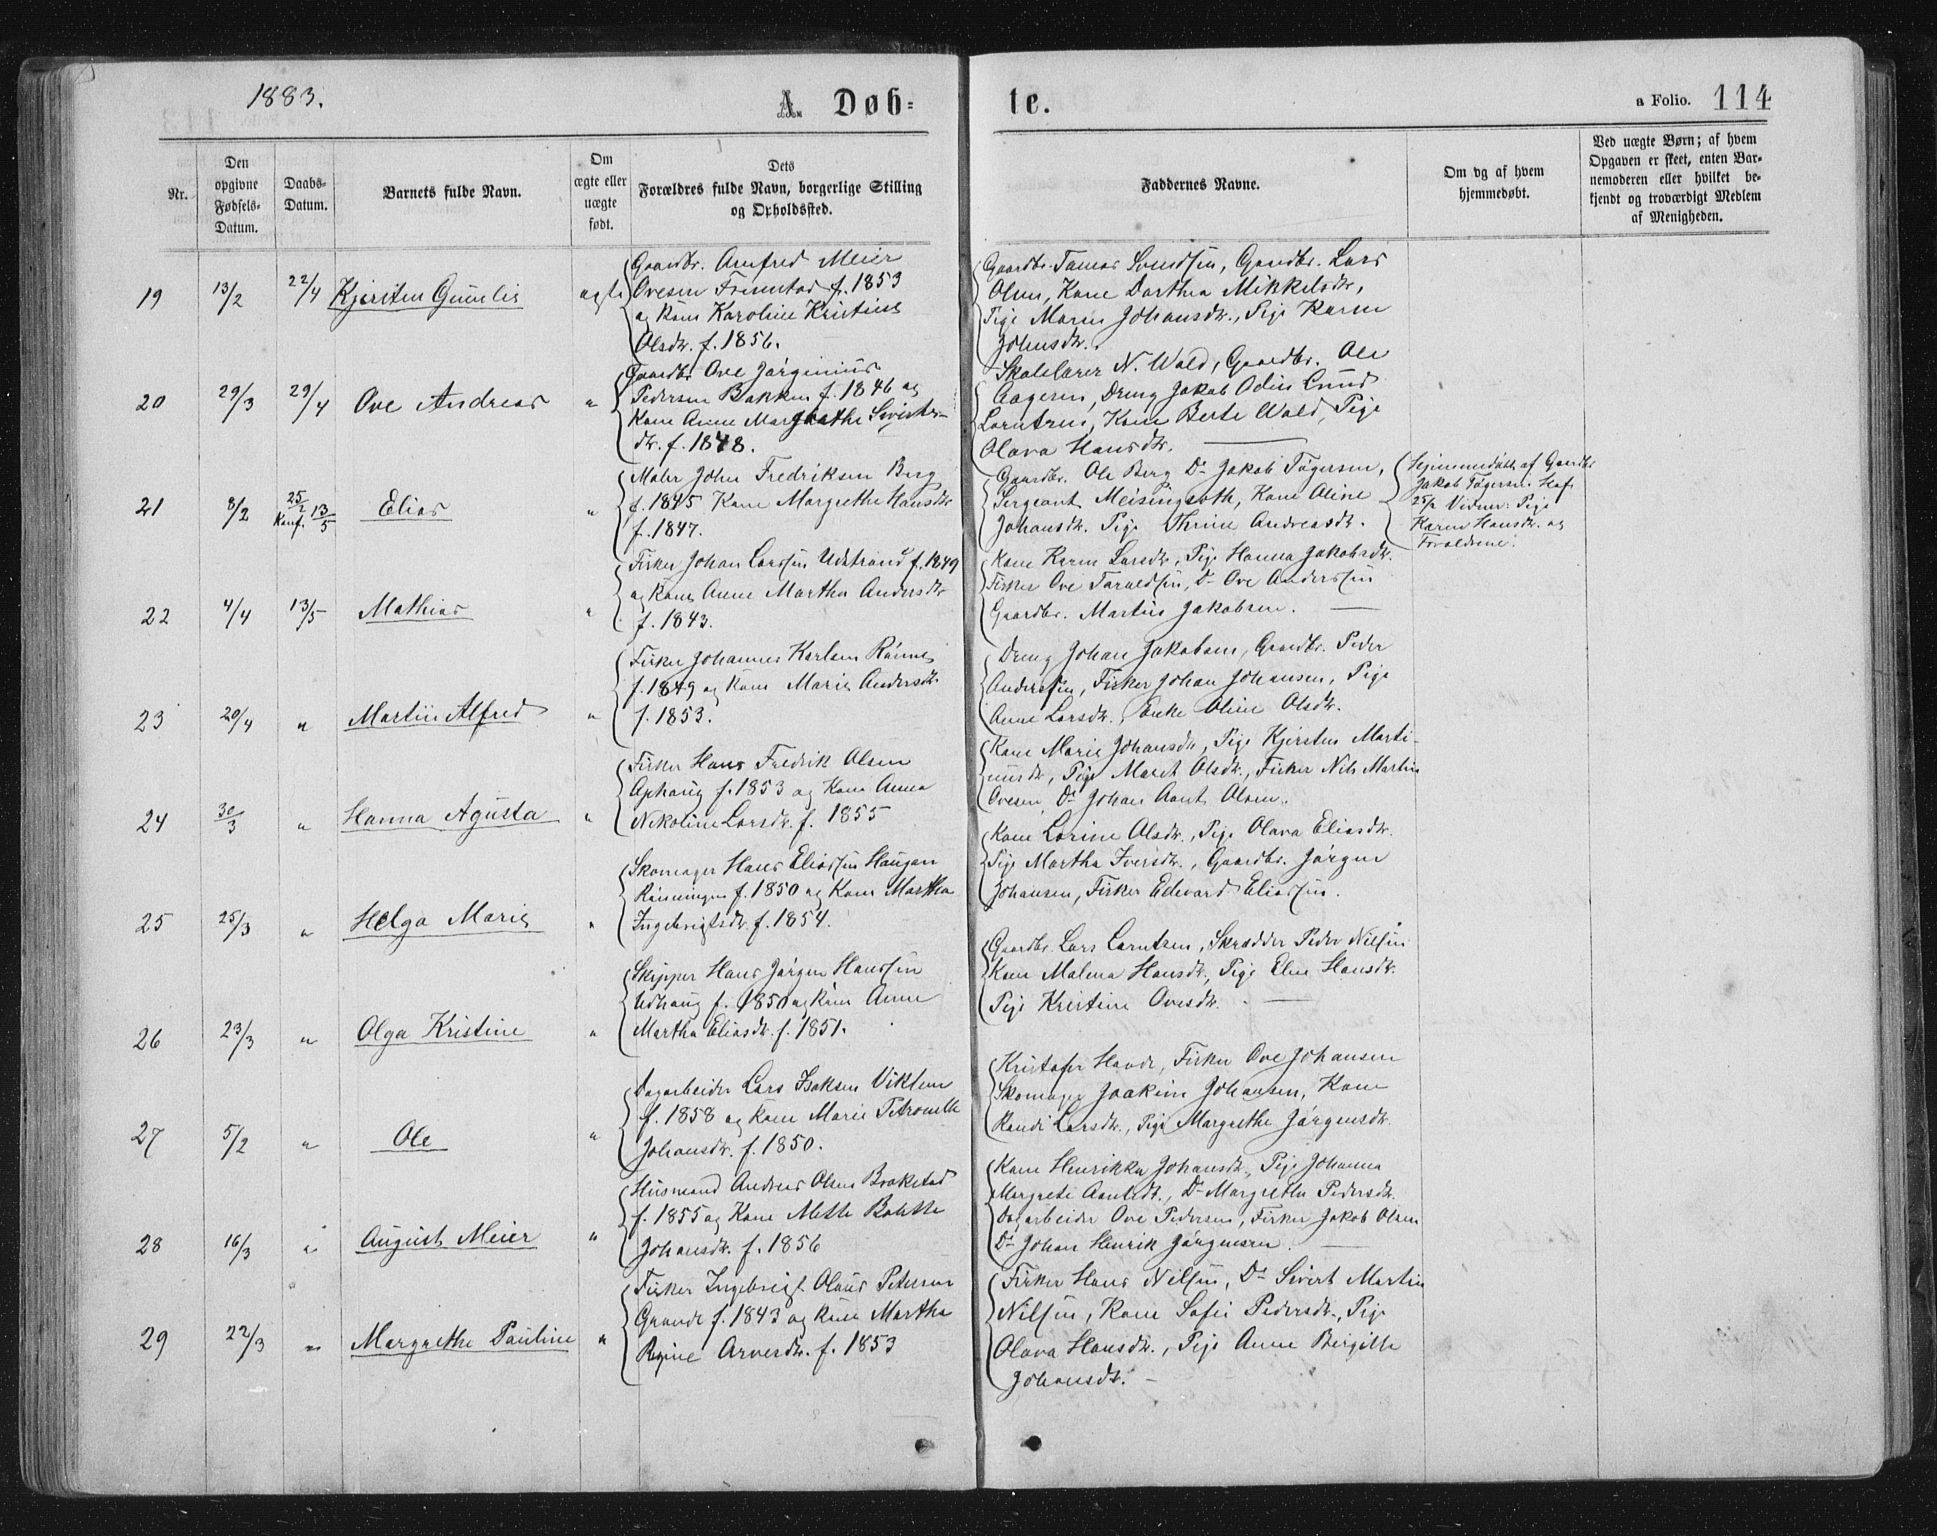 1883.
A. Døb=
te.
a Folio. 114
Nr.
Den
opgivne
Fødsels-
Datum.
Daabs-
Datum.
Barnets fulde Navn.
Om
ægte eller
uægte
født.
Dets
Forældres fulde Navn, borgerlige Stilling
og Opholdssted.
Faddernes Navne.
Om og af hvem
hjemmedøbt.
Ved uægte Børn; af hvem
Opgaven er skeet, enten Bar-
nemoderen eller hvilket be-
kjendt og troværdigt Medlem
af Menigheden.
19 13/2 22/4 Kjersten ægte
Gaardbr. Arnfred Meier
Ovesen f. 1853
og Kone Karoline Kristine
Olsdtr. f. 1856.
Gaardbr. Svendsen, Gaardbr. Lars
Olsen, Kone Dorthea Mikkelsdtr,
Pige Maren Johansdtr., Pige Karen
Johnsdtr.
20 29/3 29/4 Ove Andreas "
Gaardbr Ove Jörginius
Pedersen Bakken f. 1846 og
Kone Anne Margrethe
dtr. f. 1848.
Skolelærer N. Wold, Gaardbr. Ole
Aagesen, Dreng Jakob Odin Lund
Lorntsen, Kone Berte Wold, Pige
Olava Hansdtr.
21 8/2 25/2 Konf. 13/5 Elias "
Maler John Fredriksen Berg
f. 1845 Kone Margrethe Hansdtr
f. 1847.
Gaardbr. Ole Berg Do Jakob Tögersen,
Sergeant Meisingseth, Kone Oline
Johansdtr. Pige Thrine Andreasdtr.
Hjemmedøbt af Gaardbr
Jakob Tögersen Hof
25/2 Vidner: Pige
Karen Hansdtr. og
Forældrene.
22 4/4 13/5 Mathias "
Fisker Johan Larssen Udstrand f. 1849
og Kone Anne Martha Andersdtr
f. 1843.
Kone Karen Larsdtr, Pige Hanna Jakobsdtr.
Fisker Ove Taraldsen, Do Ove Anderssen
Gaardbr. Martin Jakobsen.
23 20/4 " Martin Alfred "
Fisker Johannes Karlsen Rönne
f. 1849 og Kone Marie Andersdtr.
f. 1853.
Dreng Johan Jakobsen, Gaardbr. Peder
Anderssen, Fisker Johan Johansen, Pige
Anne Larsdtr., Enke Oline Olsdtr.
24 30/3 " Hanna Agusta "
Fisker Hans Fredrik Olsen
Ophaug f. 1853 og Kone Anna
Nikoline Larsdtr. f. 1855
Kone Marie Johansdtr, Pige Kjersten Marti-
nusdtr, Pige Maret Olsdtr., Fisker Nils Martin
Ovesen, Do Johan Aant Olsen.
25 25/3 " Helga Marie "
Skomager Hans Eliassen Haugan
Rönningen f. 1850 og Kone Martha
Ingebrigtsdtr. f. 1854.
Kone Lorine Olsdtr., Pige Olava Eliasdtr.
Pige Martha Iversdtr., Gaardbr. Jörgen
Johansen, Fisker Edvard Eliassen.
26 23/3 " Olga Kristine "
Skipper Hans Jörgen Hanssen
Udhaug f. 1850 og Kone Anne
Martha Eliasdtr. f. 1851.
Gaardbr. Lars Lorntsen, Skrædder Peder Nilsen
Kone Malena Hansdtr., Pige Elen Hansdtr.
Pige Kristine Ovesdtr.
27 5/2 " Ole "
Dagarbeider Lars Isaksen Viklem
f. 1858 og Kone Marie Petronelle
Johansdtr. f. 1850.
Kristofer Hovde, Fisker Ove Johansen
Skomager Joakim Johansen, Kone
Randi Larsdtr., Pige Margrethe Jörgensdtr.
28 16/3 " August Meier "
Husmand Andreas Olsen Brækstad
f. 1855 og Kone Mette Bolette
Johansdtr. f. 1856
Kone Henrikka Johansdtr, Pige Johanna
Margrete Aantsdtr., Do Margrethe Pedersdtr.
Dagarbeider Ove Pedersen, Fisker Jakob Olsen
Do Johan Henrik Jörgensen.
29 22/3 " Margrethe Pauline "
Fisker Ingebrigt Olaus Petersen
Grande f. 1843 og Kone Martha
Regine f. 1853
Fisker Hans Nilsen, Do Sivert Martin
Nilsen, Kone Sofie Pedersdtr., Pige
Olava Hansdtr., Pige Anne Bergitte
Johansdtr.